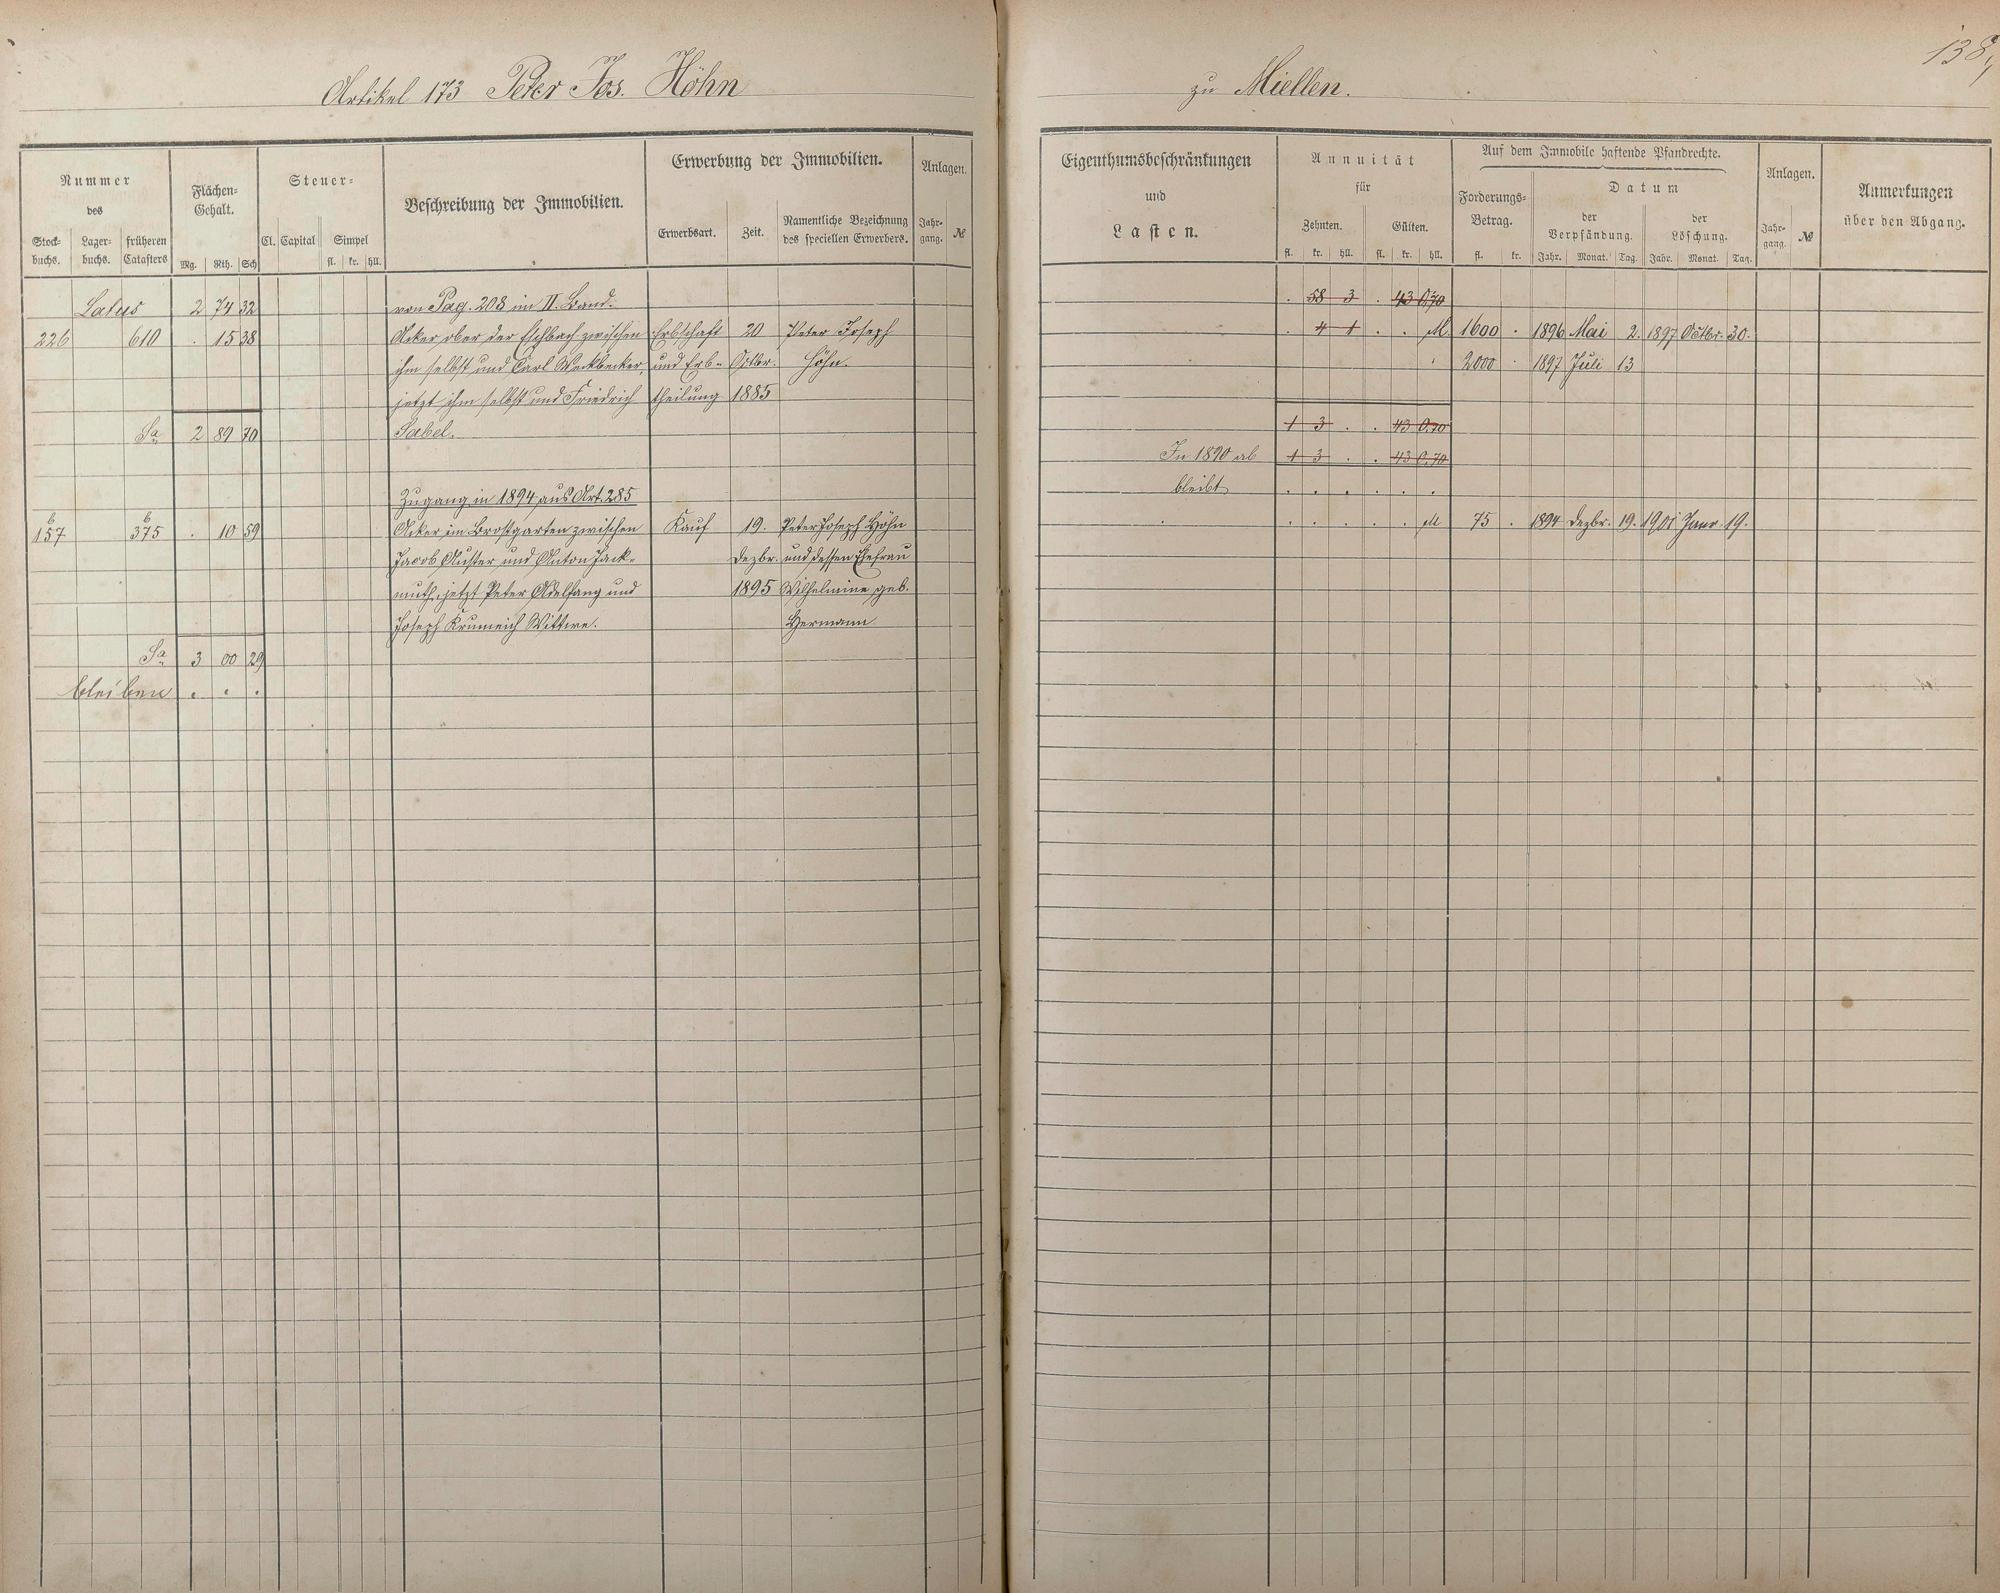 138,
Artikel 173 Peter Jos. Höhn zu Miellen.
Nummer
des
Stock-
buchs.
Lager-
buchs.
früheren
Catasters
Flächen-
Gehalt.
Mg. Rth. Sch
Steuer-
Cl. Capital Simpel
fl. kr. hll.
Beschreibung der Immobilien.
Erwerbung der Immobilien.
Erwerbsart. Zeit.
Namentliche Bezeichnung
des speciellen Erwerbers.
Anlagen.
Jahr-
gang. №
Eigenthumsbeschränkungen
und
Lasten.
Annuität
für
Zehnten. Gülten.
fl. kr. hll. fl. kr. hll.
Auf dem Immobile haftende Pfandrechte.
Forderungs-
Betrag.
fl. kr.
Datum
der
Verpfändung.
Jahr. Monat. Tag.
der
Löschung.
Jahr. Monat. Tag.
Anlagen.
Jahr-
gang. №
Anmerkungen
über den Abgang.
Latus 2 74 32 von Pag. 208 im II. Band. . 58 3 . 43 0,70
226 610 . 15 38 Acker ober der Eschbach zwischen Erbschaft 20 Peter Joseph . 4 1 . . M. 1600 . 1896 Mai 2. 1897 Octbr. 30.
ihm selbst und Carl Weckbecker, und Erb- Octbr. Höhn. 2000 . 1897 Juli 13
jetzt ihm selbst und Friedrich theilung 1885
Sa 2 89 70 Sabel. 1 3 . . 43 0,70
In 1890 ab 1 3 . . 43 0,70
Zugang in 1894 aus Art. 285 bleibt . . . . . .
b b
157 375 . 10 59 Acker im Brostgarten zwischen Kauf 19. Peter Joseph Höhn . . . . . M 75 . 1894 Dezbr. 19. 1901 Janr. 19.
Jacob Auster und Anton Jack- Dezbr. und dessen Ehefrau
muth, jetzt Peter Adelfang und 1895 Wilhelmine geb.
Joseph Krumeich Wittwe. Hermann
Sa 3 00 29
bleiben . . .